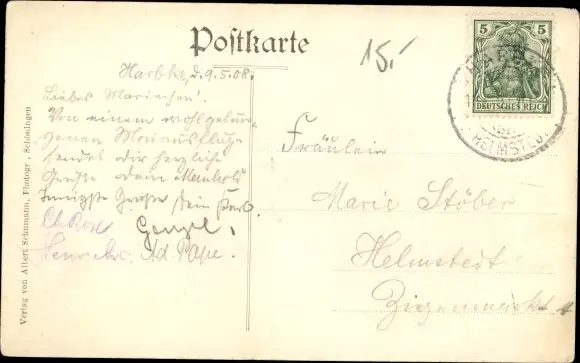 Postkarte
15.-
Harbke, d. 9.5.08.
Liebes Mariechen!
Von einem wohlgelun-
genen Maiausflug
sendet dir herzliche
Grüße dein
Innigste Grüße sendet dein
Ad. Pape.
Fräulein
Marie Stöber
Helmstedt
Ziegenmarkt
5 5
DEUTSCHES REICH
HELMSTEDT
Verlag von Albert Schumann, Photogr., Schöningen